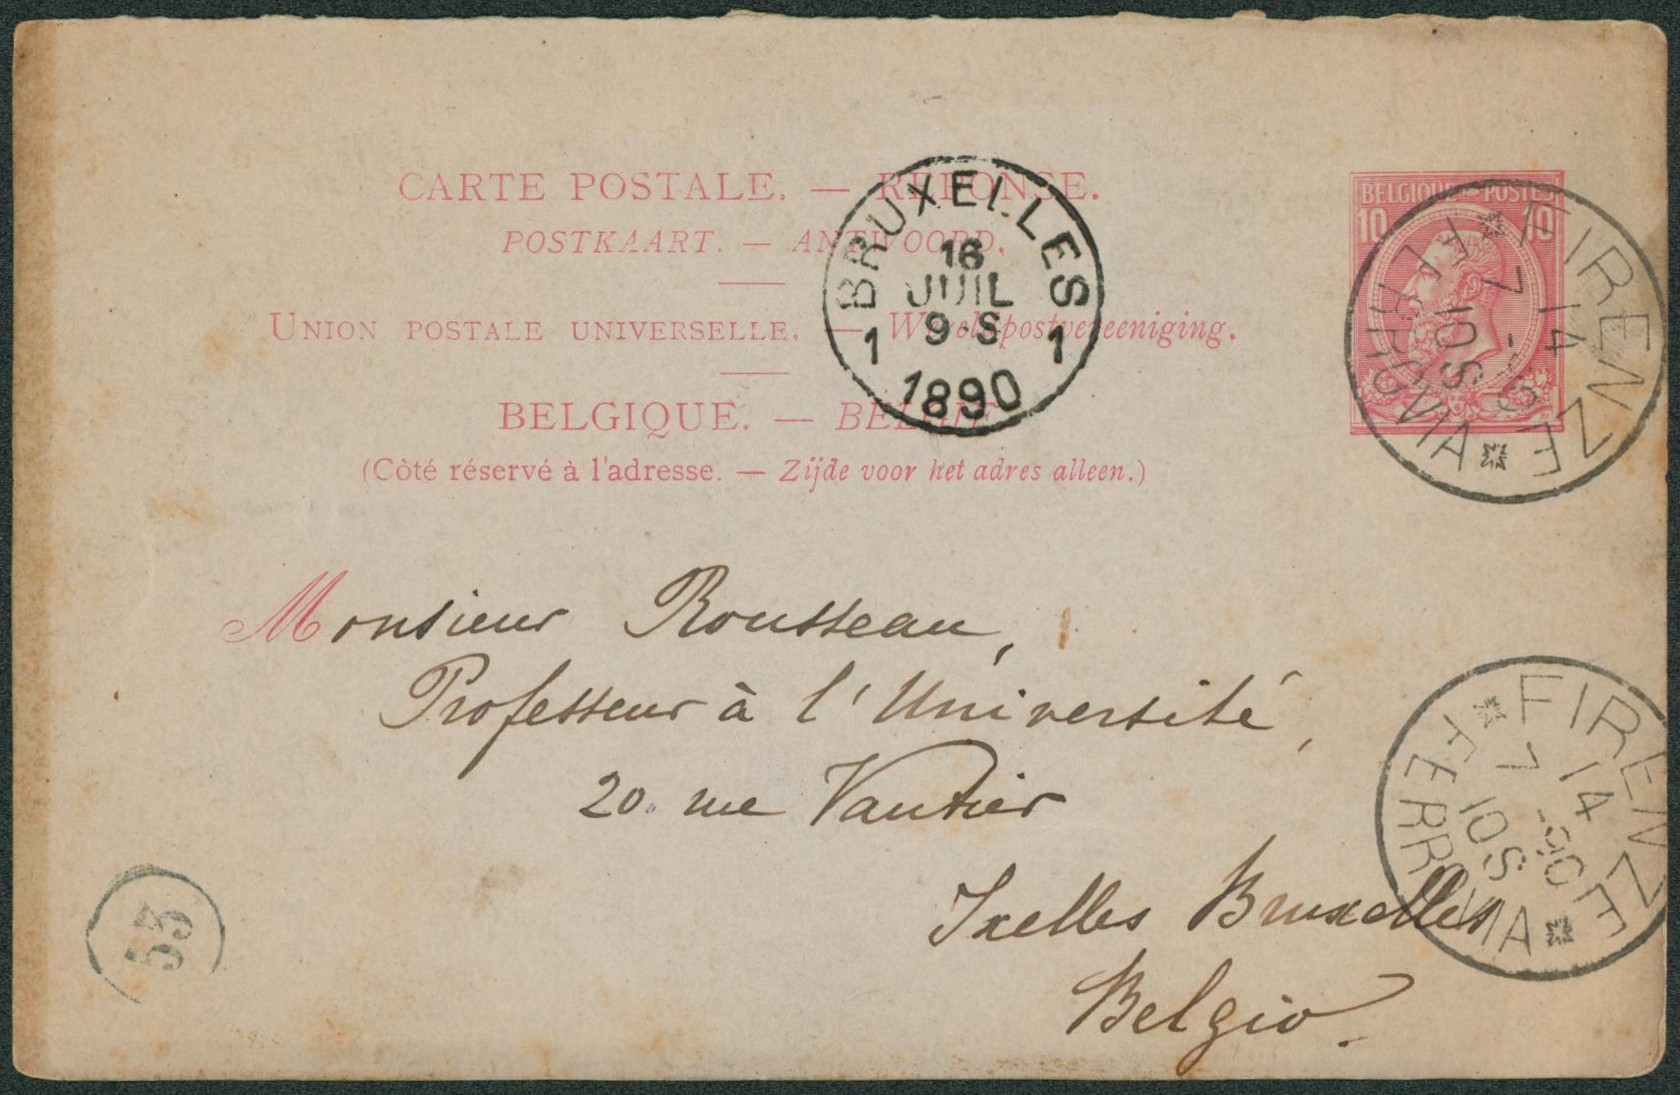 CARTE POSTALE. — RÉPONSE.
POSTKAART. — ANTWOORD.
UNION POSTALE UNIVERSELLE. — Wereldpostvereeniging.
BELGIQUE. — BELGIË
(Côté réservé à l'adresse. — Zijde voor het adres alleen.)
BRUXELLES
16
JUIL
9-S
1 1
1890
BELGIQUE POSTES
10 10
FIRENZE
14
7 -90
10S
FERROVIA
Monsieur Rousseau,
Professeur à l'Université,
20. rue Vautier
Ixelles Bruxelles
Belgio.
FIRENZE
14
7 -90
10S
FERROVIA
53